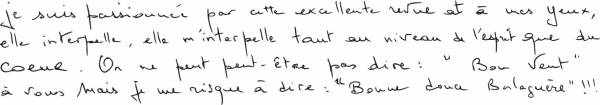 je suis passionnée par cette excellente revue et à mes yeux,
elle interpelle, elle m'interpelle tant au niveau de l'esprit que du
coeur. On ne peut peut-être pas dire : " Bon Vent "
à vous mais je me risque à dire : "Bonne donca Balaguère" !!!